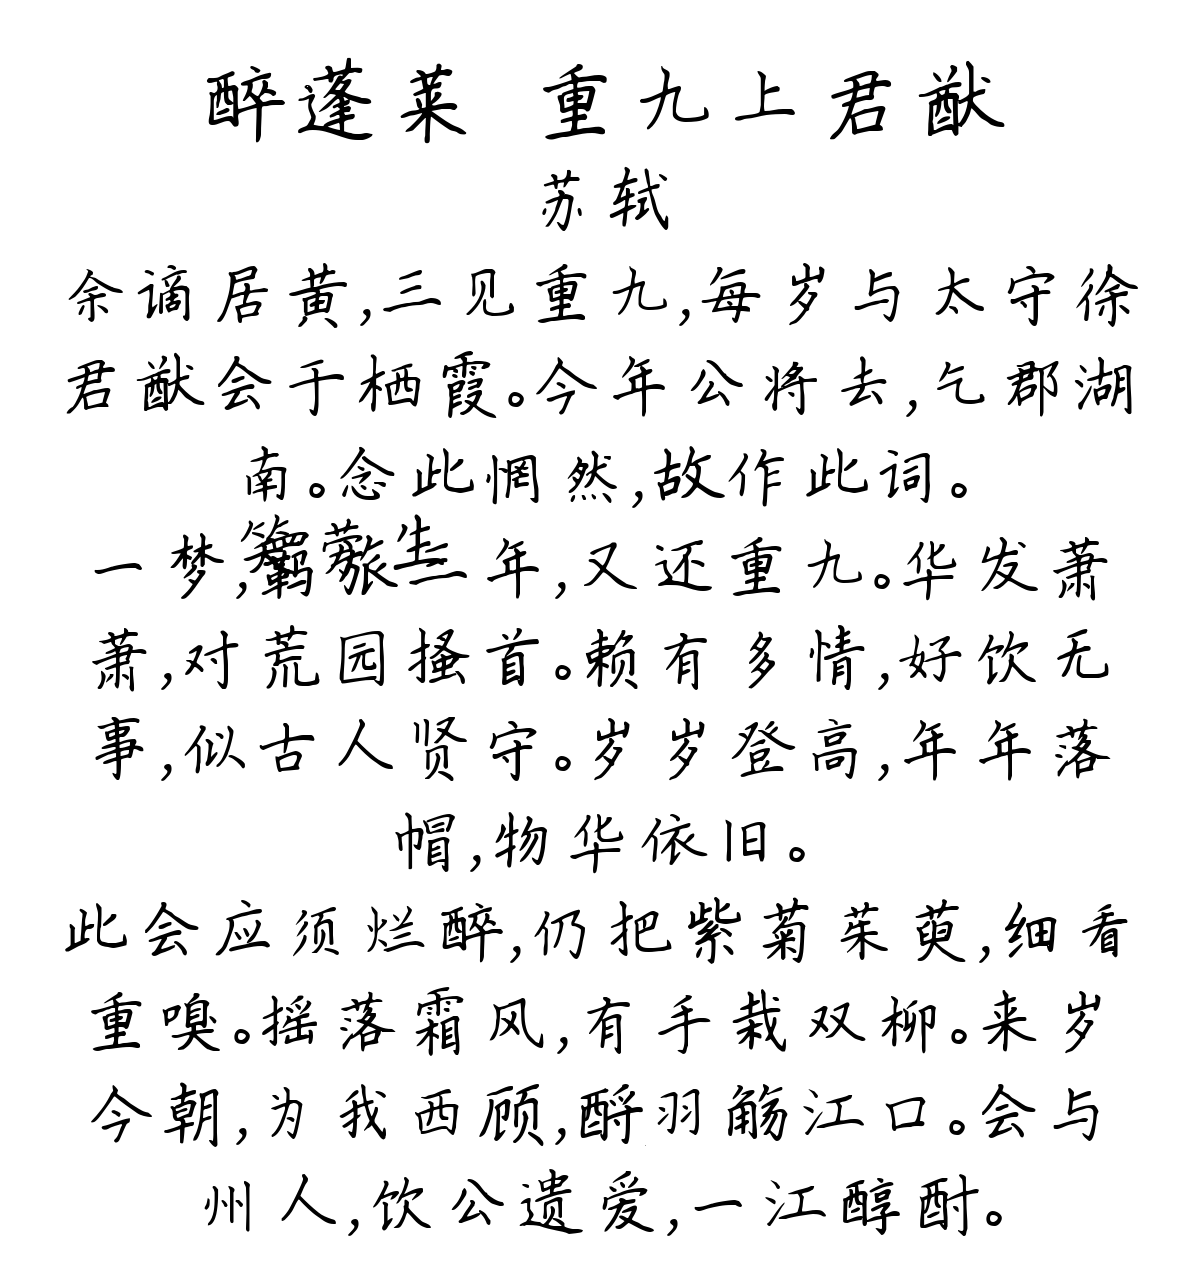 醉蓬莱 重九上君猷
苏轼
余谪居黄,三见重九,每岁与太守徐
君猷会于栖霞。今年公将去,乞郡湖
南。念此惘然,故作此词。
笑劳生
一梦,羁旅三年,又还重九。华发萧
萧,对荒园搔首。赖有多情,好饮无
事,似古人贤守。岁岁登高,年年落
帽,物华依旧。
此会应须烂醉,仍把紫菊茱萸,细看
重嗅。摇落霜风,有手栽双柳。来岁
今朝,为我西顾,酹羽觞江口。会与
州人,饮公遗爱,一江醇酎。